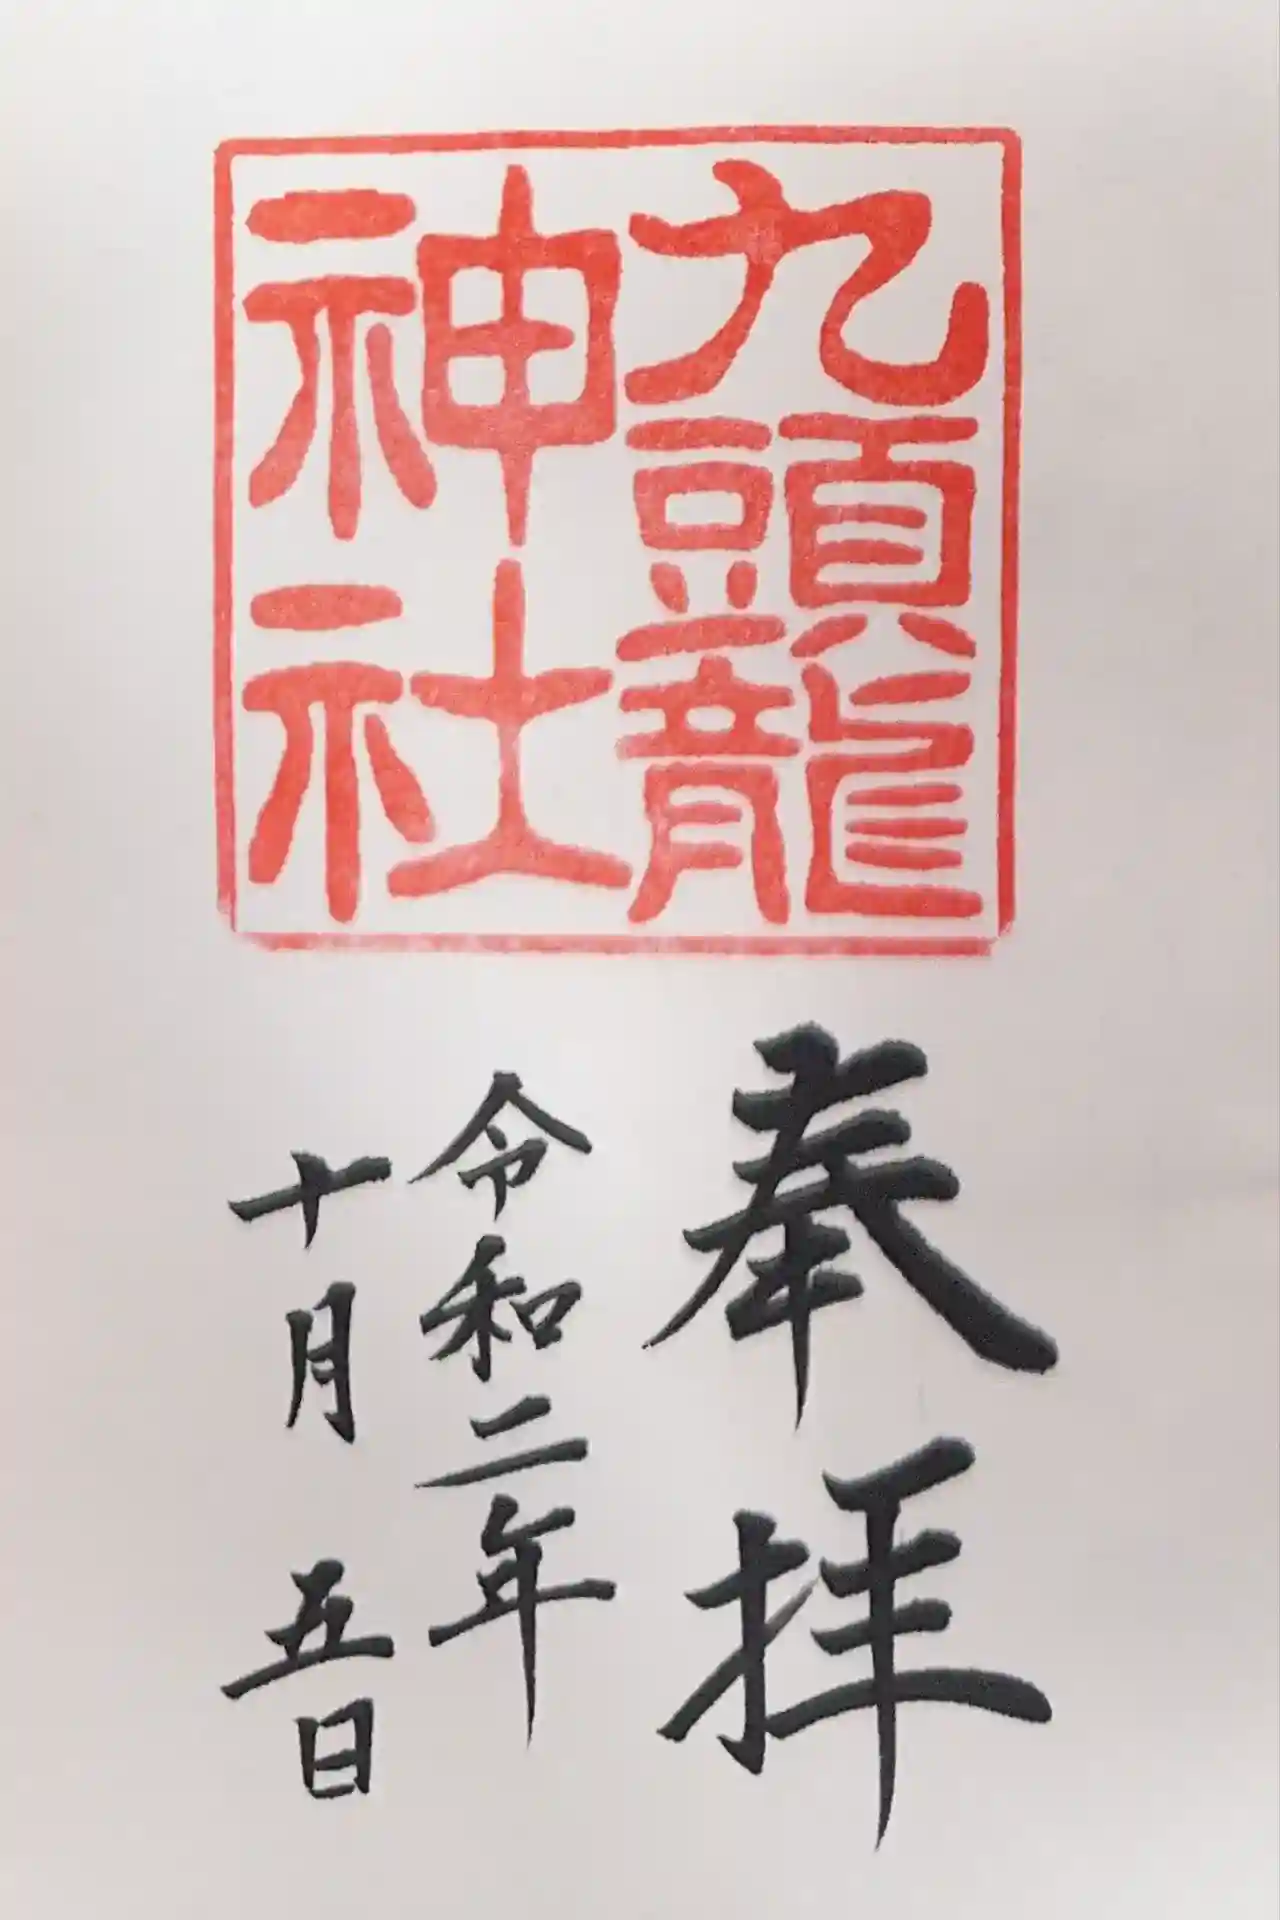 九頭龍
神社
奉拝
令和二年
十月五日